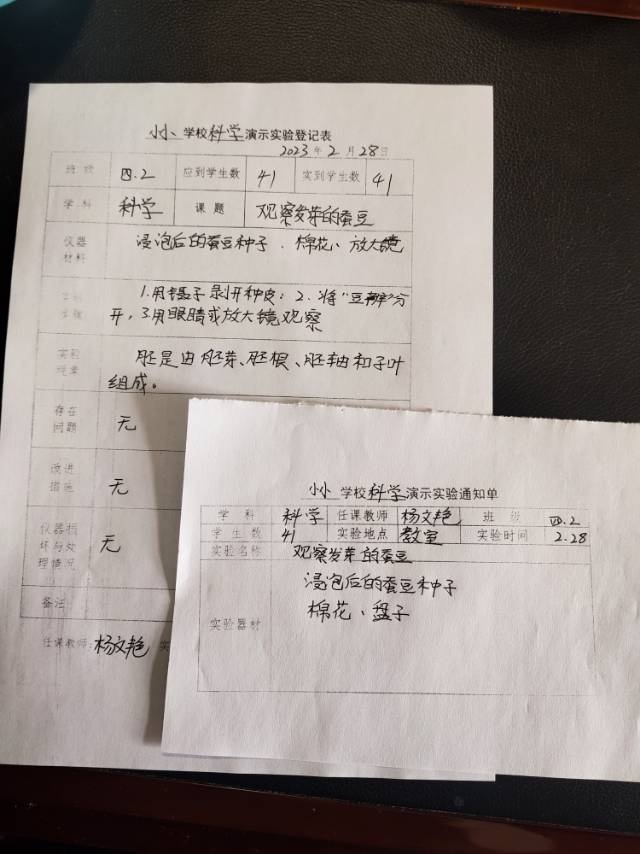 小 学校科学演示实验登记表
2023年2月28日
班级 四.2 应到学生数 41 实到学生数 41
学科 科学 课题 观察发芽的蚕豆
仪器材料 浸泡后的蚕豆种子、棉花、放大镜
1.用镊子剥开种皮；2.将“豆瓣”分
开，3.用眼睛或放大镜观察
实验
胚是由胚芽、胚根、胚轴和子叶
组成。
存在问题 无
改进措施 无
仪器损坏与处理情况 无
备注
任课教师：杨文艳 实
小 学校科学演示实验通知单
学科 科学 任课教师 杨文艳 班级 四.2
学生数 41 实验地点 教室 实验时间 2.28
实验名称 观察发芽的蚕豆
实验器材 浸泡后的蚕豆种子
棉花、盘子